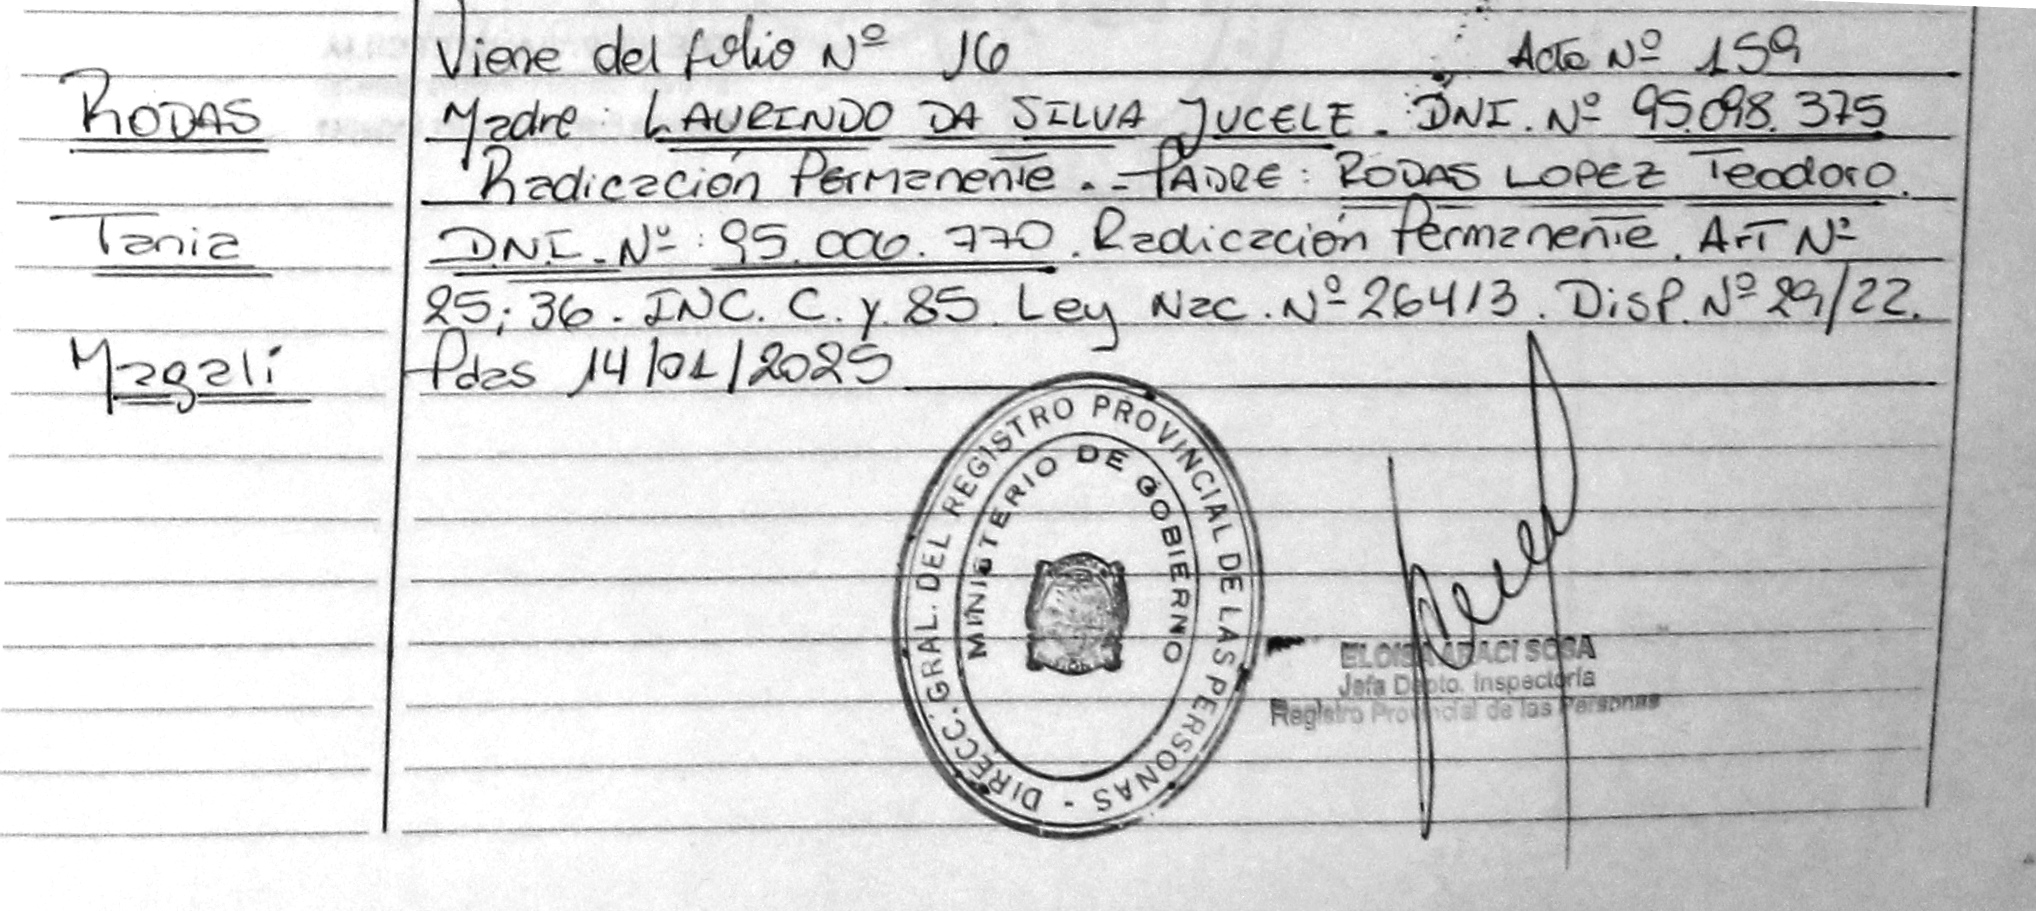 Viene del folio Nº 16 Acta Nº 159
RODAS
Madre: LAURINDO DA SILVA JUCELE. DNI. Nº 95.098.375
Radicación Permanente. - PADRE: RODAS LOPEZ Teodoro.
Tania
D.N.I. Nº: 95.006.770. Radicación Permanente. Art Nº
25; 36. INC. C. y 85 Ley Nac. Nº 26413. Disp. Nº 29/22.
Magali
Pdas 14/01/2025
DIRECC. GRAL. DEL REGISTRO PROVINCIAL DE LAS PERSONAS -
MINISTERIO DE GOBIERNO
ELOISA ARACI SOSA
Jefa Dpto. Inspectoría
Registro Provincial de las Personas